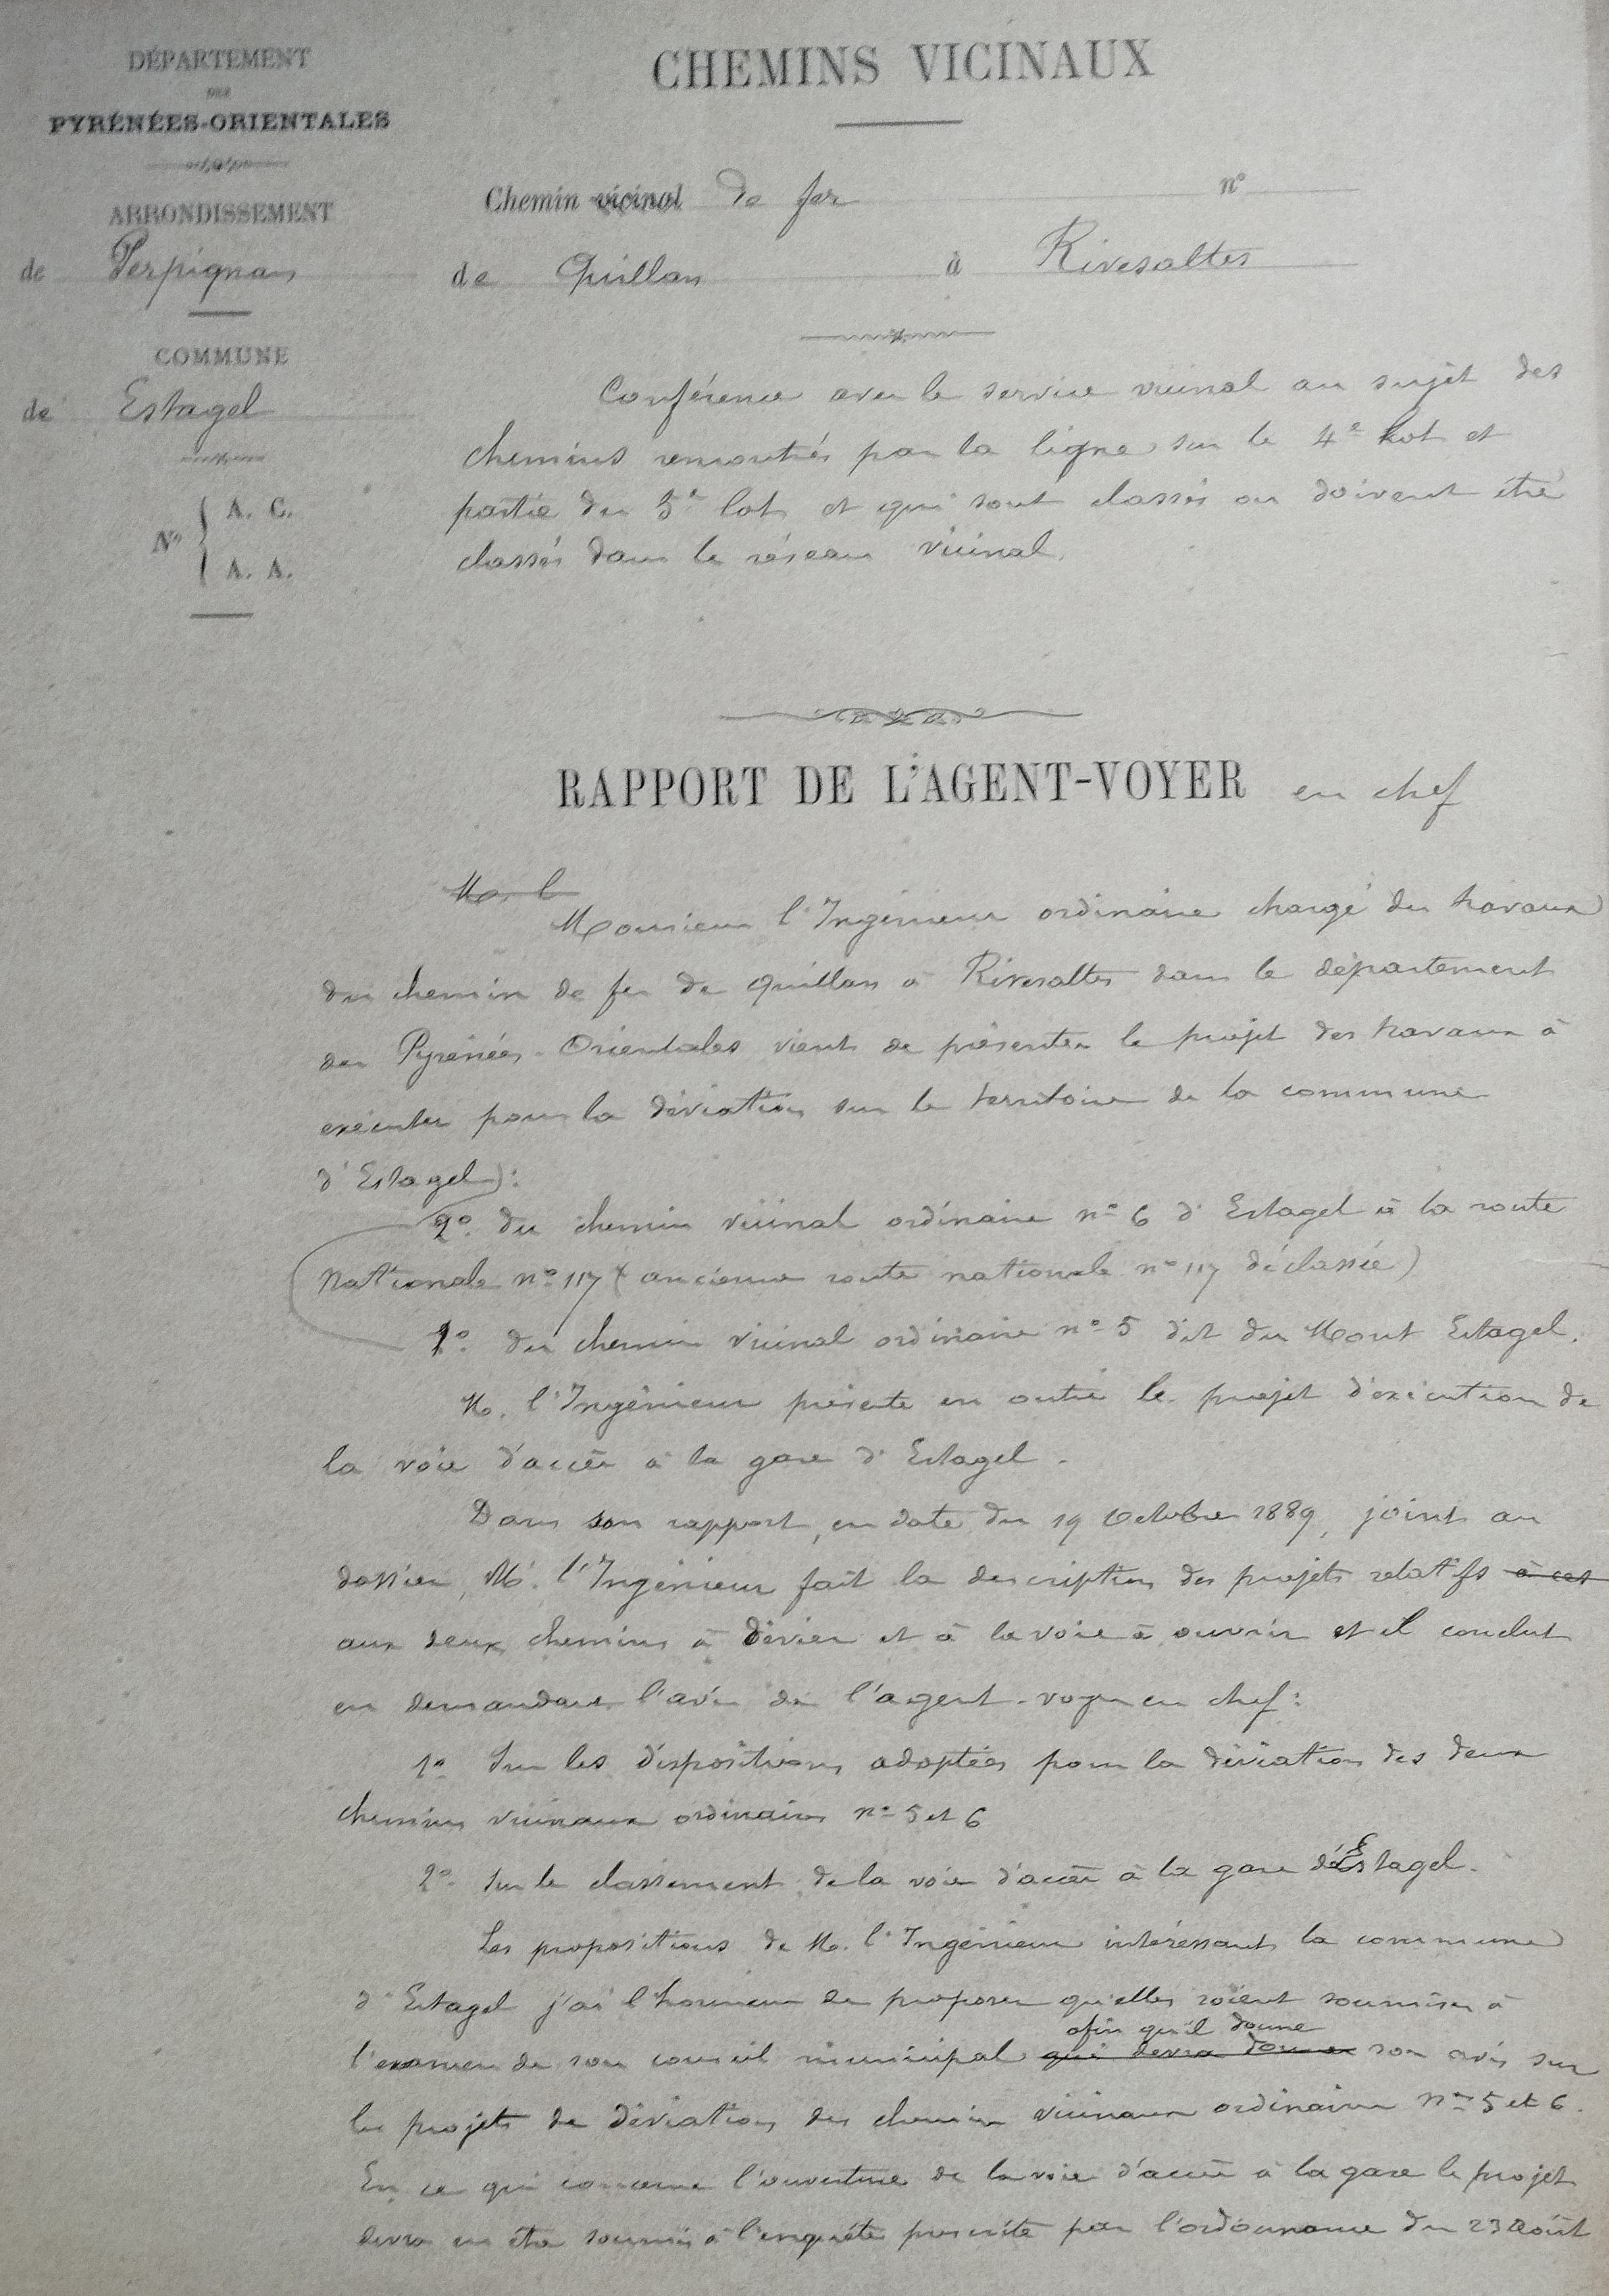 DÉPARTEMENT
DES
PYRÉNÉES-ORIENTALES
ARRONDISSEMENT
de Perpignan
COMMUNE
de Estagel
Nos
A. C.
A. A.
CHEMINS VICINAUX
Chemin vicinal de fer n°
de Quillan à Rivesaltes
Conférence avec le service vicinal au sujet des
chemins rencontrés par la ligne sur le 4e lot et
partie du 5e lot et qui sont classés ou doivent être
classés dans le réseau vicinal.
RAPPORT DE L'AGENT-VOYER en chef
M. l
Monsieur l'Ingénieur ordinaire chargé des travaux
du chemin de fer de Quillan à Rivesaltes dans le département
des Pyrénées-Orientales vient de présenter le projet des travaux à
exécuter pour la déviation sur le territoire de la commune
d'Estagel :
2° du chemin vicinal ordinaire n° 6 d'Estagel à la route
Nationale n° 117 (ancienne route nationale n° 117 déclassée)
1° du chemin vicinal ordinaire n° 5 dit du Mont Estagel.
M. l'Ingénieur présente en outre le projet d'exécution de
la voie d'accès à la gare d'Estagel.
Dans son rapport, en date du 19 Octobre 1889, joint au
dossier, M. l'Ingénieur fait la description des projets relatifs à ces
aux deux chemins à dévier et à la voie à ouvrir et il conclut
en demandant l'avis de l'agent-voyer en chef :
1° Sur les dispositions adoptées pour la déviation des deux
chemins vicinaux ordinaires nos 5 et 6
2° Sur le classement de la voie d'accès à la gare d'Estagel.
Les propositions de M. l'Ingénieur intéressant la commune
d'Estagel j'ai l'honneur de proposer qu'elles soient soumises à
afin qu'il donne
l'examen de son conseil municipal qui devra donner son avis sur
les projets de déviation des chemins vicinaux ordinaires nos 5 et 6.
En ce qui concerne l'ouverture de la voie d'accès à la gare le projet
devra en être soumis à l'enquête prescrite par l'ordonnance du 23 Août